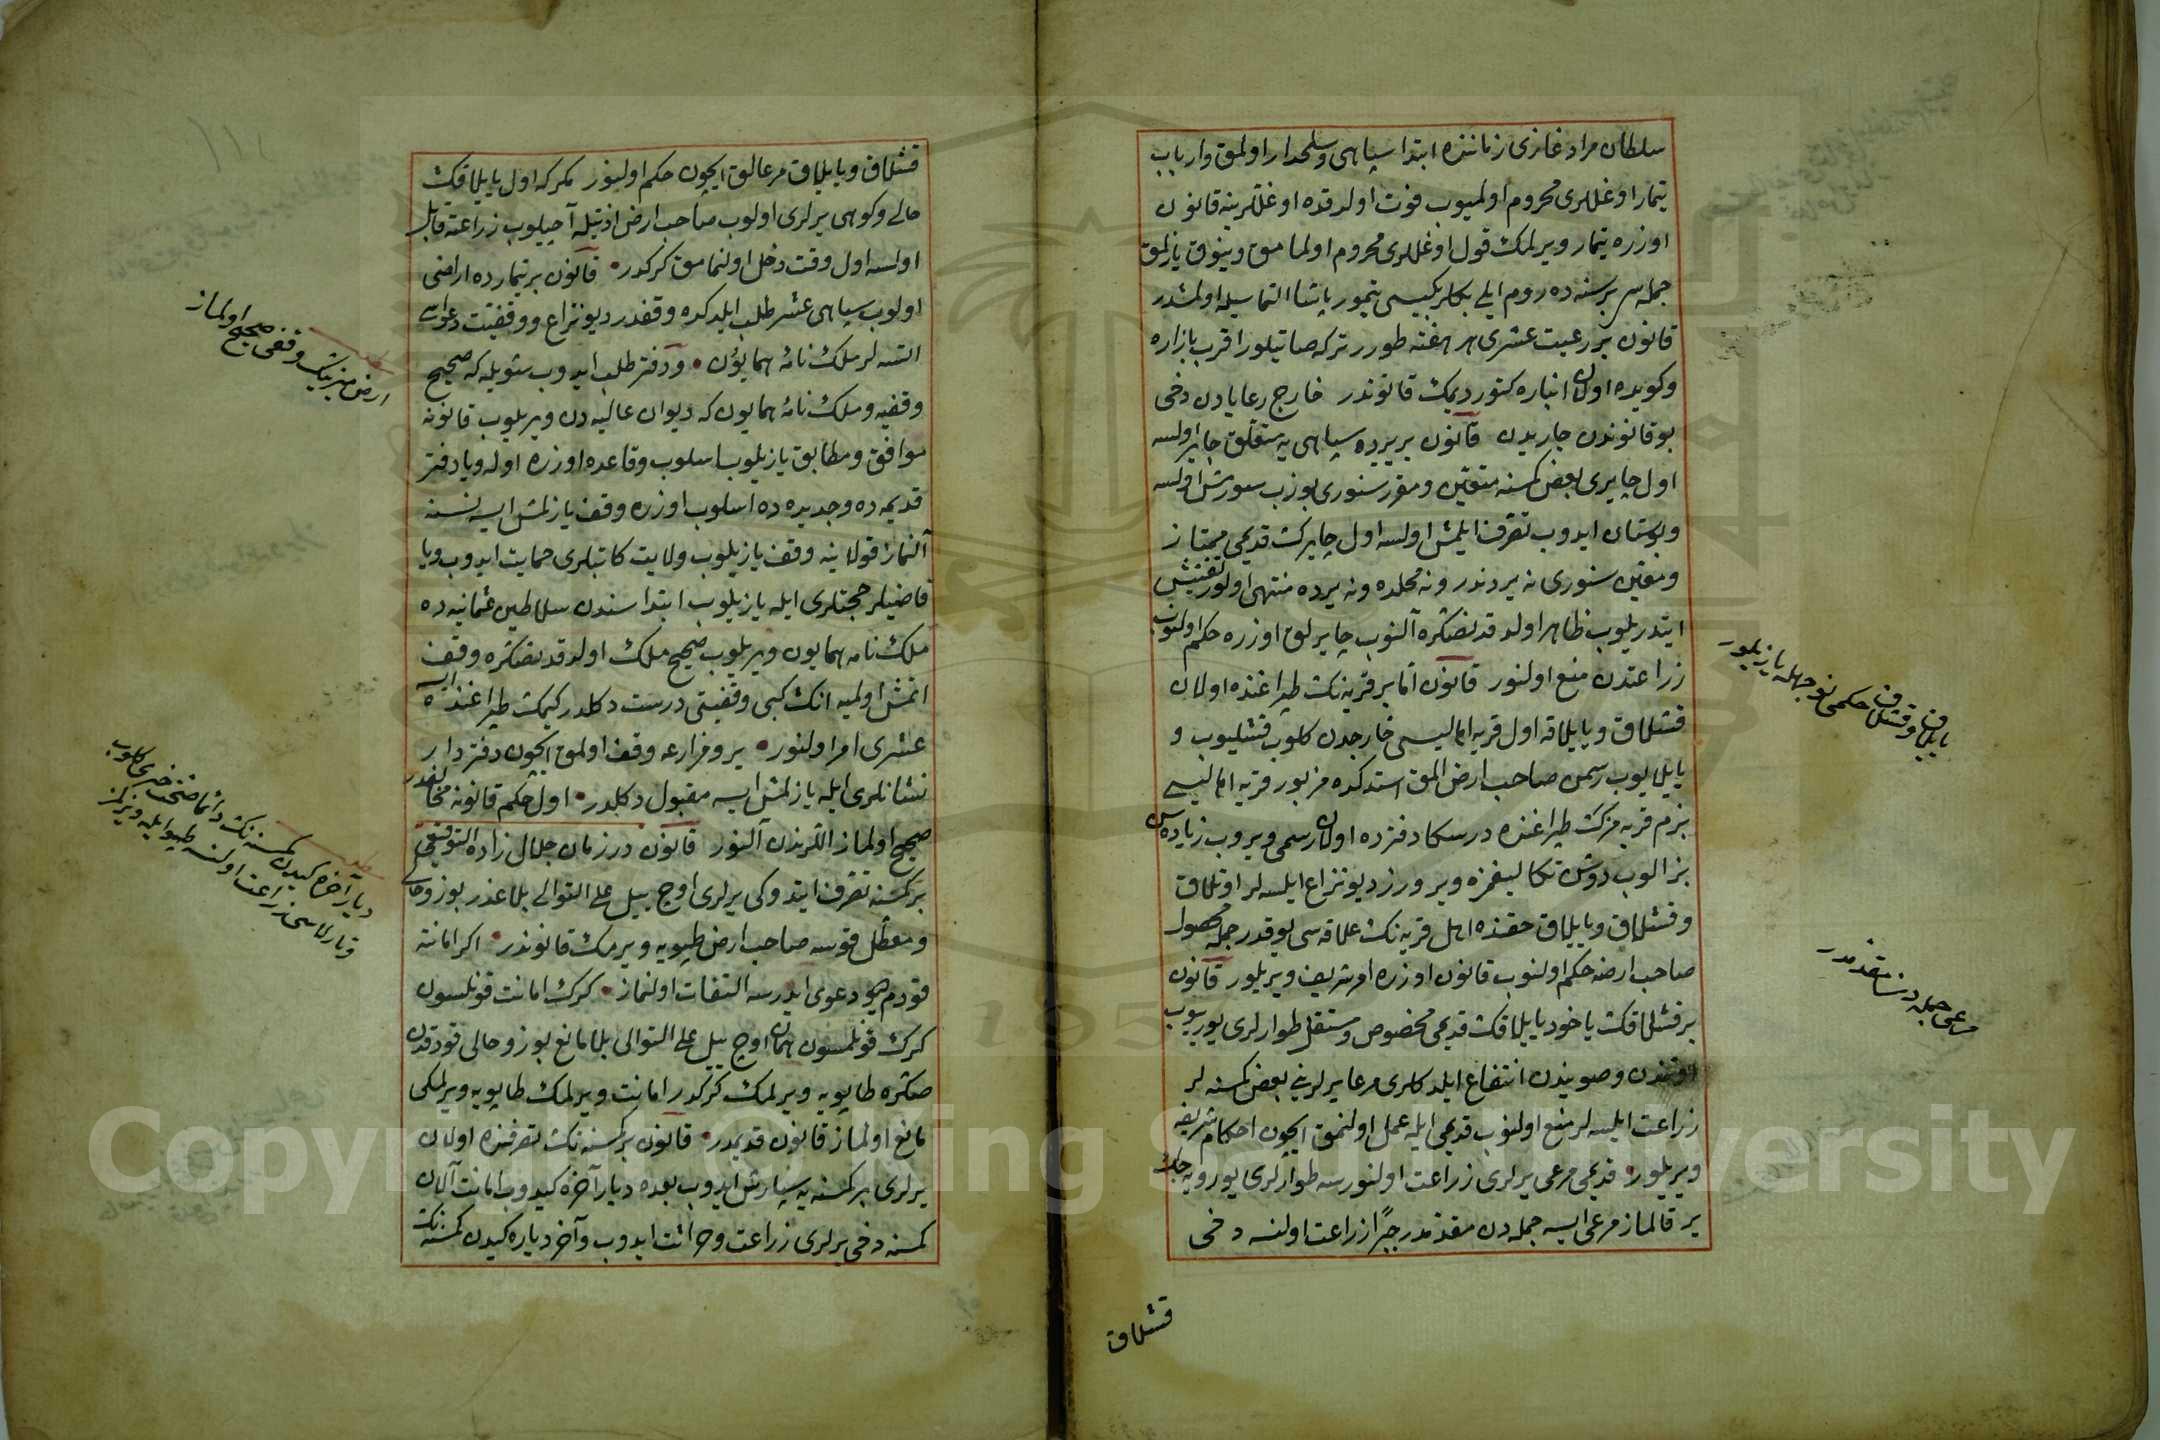 سلطان مراد غازی زماننده ابتدا سپاهی و سلحدار اولمق و ارباب
تیمار اوغللری محروم اولمیوب فوت اولدقده اوغللرینه قانون
اوزره تیمار ویرلمک قول اوغللری محروم اولمامق وینوق یازلمق
جمله سی بر سنه ده روم ایلی بکلربکیسی تیمور پاشا التماسیله اولمشدر
قانون بر رعیت عشری هر هفته طورر ترکه صاتیلور اقرب بازاره
وکویده اولان انباره کتوردیمک قانوندر خارج رعایادن دخی
بو قانوندن جاریدن قانون بر یرده سپاهی یه متعلق چایر اولسه
اول چایری بعض کمسنه متعین و مقرر سنوری بوزب سورمش اولسه
وبوستان ایدوب تصرف ایلمش اولسه اول چایرک قدیمی ممتاز
ومعین سنوری نه یردندر ونه محلده ونه یرده منتهی اولور تفتیش
ایتدریلوب ظاهر اولدقدنصکره آلنوب چایرلق اوزره حکم اولنوب
زراعتدن منع اولنور قانون اما بر قریه نک طپراغنده اولان
قشلاق و یایلاقه اول قریه اهالیسی خارجدن کلوب قشلیوب و
یایلایوب رسمن صاحب ارض المق استدکده مزبور قریه اهالیسی
بزم قریه مزک طپراغنده در سکا دفترده اولان رسمی ویروب زیاده سن
بز الوب دوشن تکالیفمزه ویرورز دیو نزاع ایلسه لر اوتلاق
وقشلاق و یایلاق حقنده اهل قریه نک علاقه سی یوقدر جمله محصول
صاحب ارضه حکم اولنوب قانون اوزره امر شریف ویریلور قانون
بر قشلاقک یاخود یایلاقک قدیمی مخصوص و مستقل طوارلری یوریوب
اوتندن وصویندن انتفاع ایلدکلری مرعا یرلرینی بعض کمسنه لر
زراعت ایلسه لر منع اولنوب قدیمی ایله عمل اولنمق ایچون احکام شریفه
ویریلور قدیمی مرعی یرلری زراعت اولنورسه طوارلری یورویه جک
یر قالماز مرعی ایسه جمله دن مقدمدر جبرا زراعت اولنسه دخی
قشلاق
یایلاق و قشلاق حکمی نوجهله یازیلور
مرعی جمله دن مقدمدر
قشلاق و یایلاق مرعالق ایچون حکم اولنور مکرکه اول یایلاقک
حالی وکوهی یرلری اولوب صاحب ارض اذنیله آچیلوب زراعته قابل
اولسه اول وقت دخل اولنمامق کرکدر قانون بر تیمارده اراضی
اولوب سپاهی عشر طلب ایلدکده وقفدر دیو نزاع و وقفیت دعواسی
ایتسه لر ملک نامهٔ همایون ودفتر طلب ایدوب شویله که صحیح
وقفیه و ملک نامهٔ همایون که دیوان عالیه دن ویریلوب قانونه
موافق و مطابق یازیلوب اسلوب وقاعده اوزره اوله ویا دفتر
قدیمه ده وجدیده ده اسلوب اوزره وقف یازلمش ایسه نسنه
آلنماز قولاینه وقف یازیلوب ولایت کاتبلری حمایت ایدوب ویا
قاضیلر حجتلری ایله یازیلوب ابتدا سندن سلاطین عثمانیه ده
ملک نامه همایون ویریلوب صحیح ملک اولدقدنصکره وقف
اتمش اولمیه انک کبی وقفیتی درست دکلدر کیمک طپراغنده ایسه
عشری امر اولنور یر ومزارعه وقف اولمق ایچون دفتردار
نشانلری ایله یازلمش ایسه مقبول دکلدر اول حکم قانونه مخالفدر
صحیح اولماز اللرندن آلنور قانون در زمان جلال زاده التوقیعی
بر کمسنه تصرف ایتدوکی یرلری اوچ ییل علی التوالی بلا عذر بوز وخالی
ومعطل قوسه صاحب ارض طپویه ویرمک قانوندر اکر امانته
قودم دیو دعوی ایدرسه التفات اولنماز کرک امانت قونلسون
کرک قونلمسون همان اوچ ییل علی التوالی بلا مانع بوز وخالی قودقدن
صکره طاپویه ویرلمک کرکدر امانت ویرلمک طاپویه ویرلمکی
مانع اولماز قانون قدیمدر قانون بر کمسنه نک تصرفنده اولان
یرلری بر کمسنه یه سپارش ایدوب بعده دیار آخره کیدوب امانت آلان
کمسنه دخی یرلری زراعت وحراثت ایدوب وآخر دیاره کیدن کمسنه نک
ارض میرینک وقفی صحیح اولماز
دیار آخره کیدن کمسنه نک دائما صحت خبری کلوب
قرنداشی زراعت اولسه طپو ایله ویرلمز